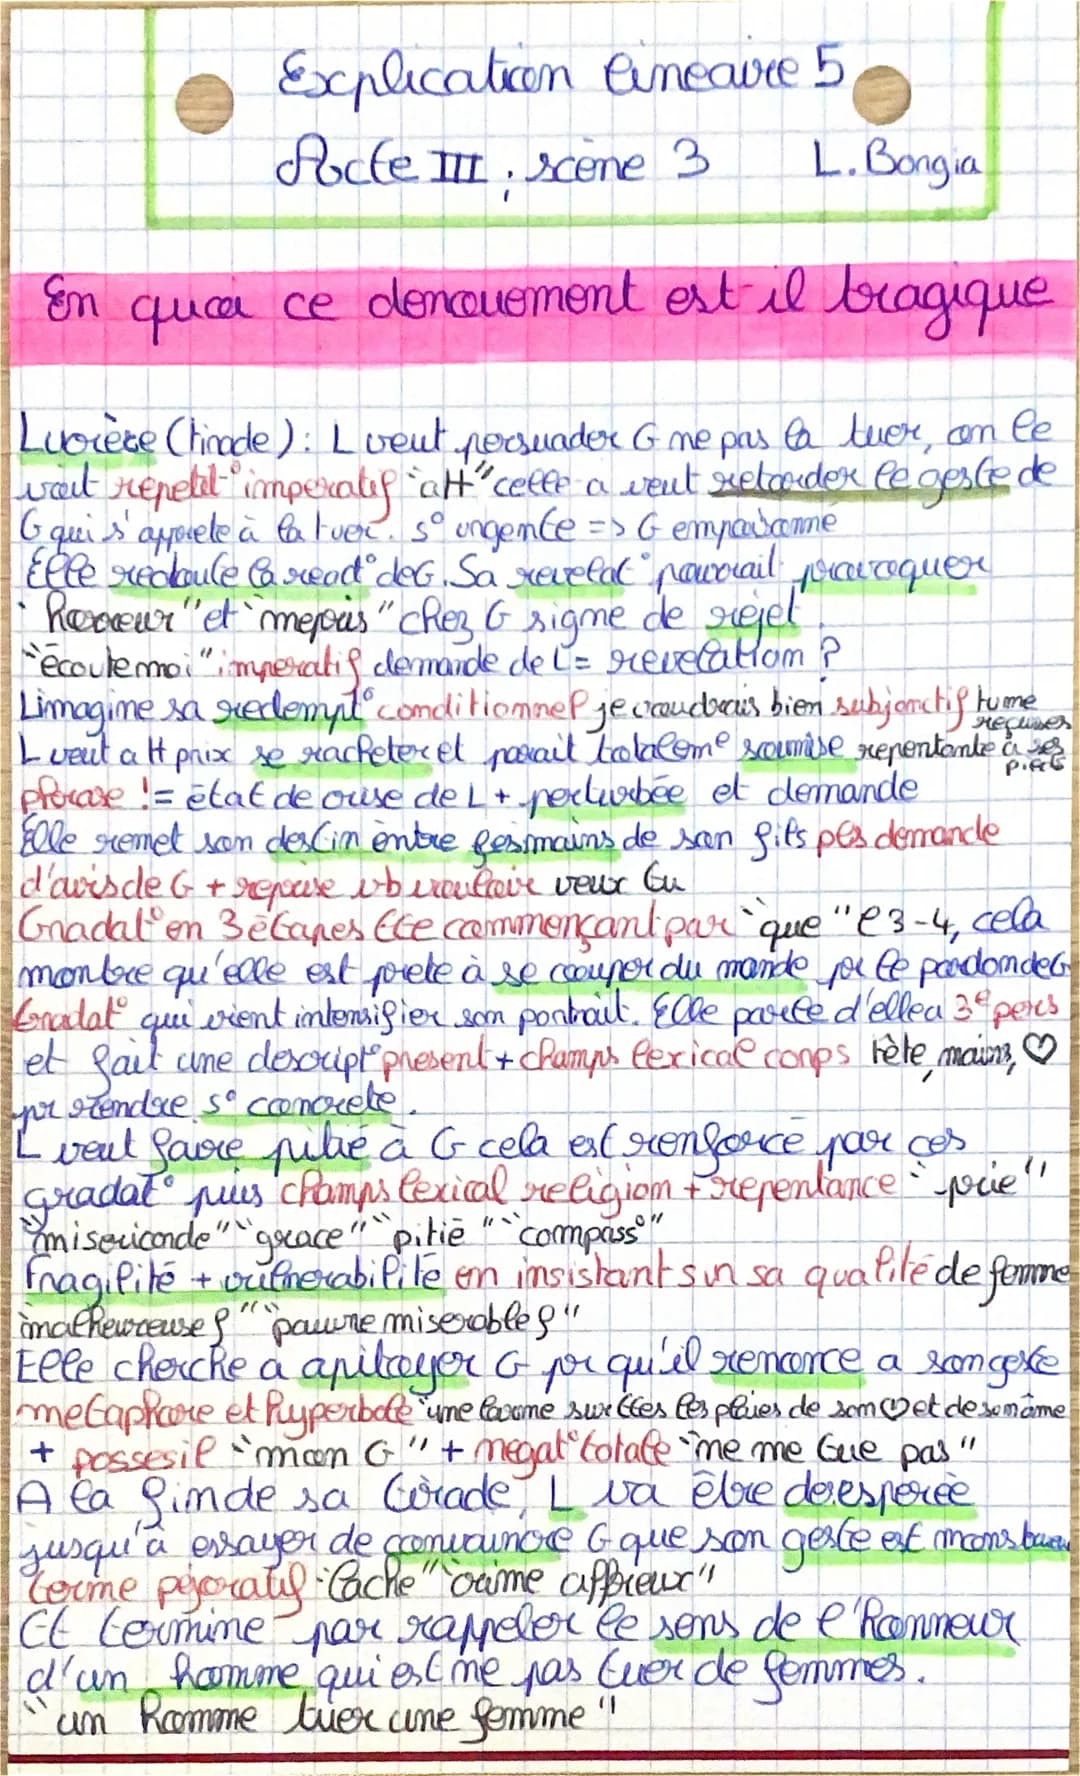 Explication lineaire 5
Acte III, scène 3 L. Borgia
En quoi ce denouement est-il tragique
Lucrèce (tirade): L veut persuader G ne pas la tuer, on le
voit répétit° impératif "att" celle-a veut retarder le geste de
G qui s'apprete à la tuer. s° urgence => G empoisonne
Elle redoute la react° de G. Sa revelat° pourrait provoquer
"horreur" et "mepris" chez G signe de rejet.
"écoute moi" imperatif demande de L = revelation ?
L imagine sa redempt° conditionnel je voudrais bien subjonctif tu me
reçusses
L veut a tt prix se racheter et parait totaleme soumise repentante à ses
pieds
phrase != état de crise de L + perturbée et demande
Elle remet son destin entre les mains de son fils pls demande
d'avis de G + repose vb vouloir veux tu
Gradat° en 3 étapes tte commençant par "que" l 3-4, cela
montre qu'elle est prete à se couper du monde pr le pardon de G
Gradat° qui vient intensifier son portrait. Elle parle d'elle a 3e pers
et fait une descript° present + champs lexical corps tête, mains, ♡
pr rendre s° concrete.
L veut faire pitié à G cela est renforcé par ces
gradat° puis champs lexical religion + repentance "prie"
"misericorde" "grace" "pitié" "compass°"
Fragilité + vulnerabilité en insistant sur sa qualité de femme
"malheureuse f" "pauvre miserable f"
Elle cherche a apitoyer G pr qu'il renonce a son geste
metaphore et hyperbole "une larme sur ttes les plaies de son ♡ et de son âme
+ possesif "mon G" + negat° totale "ne me tue pas"
A la fin de sa tirade, L va être desesperée
jusqu'à essayer de convaincre G que son geste est monstrueu
terme péjoratif "lache" "crime affreux"
Et termine par rappeler le sens de l'honneur
d'un homme qui est ne pas tuer de femmes.
"un homme tuer une femme"